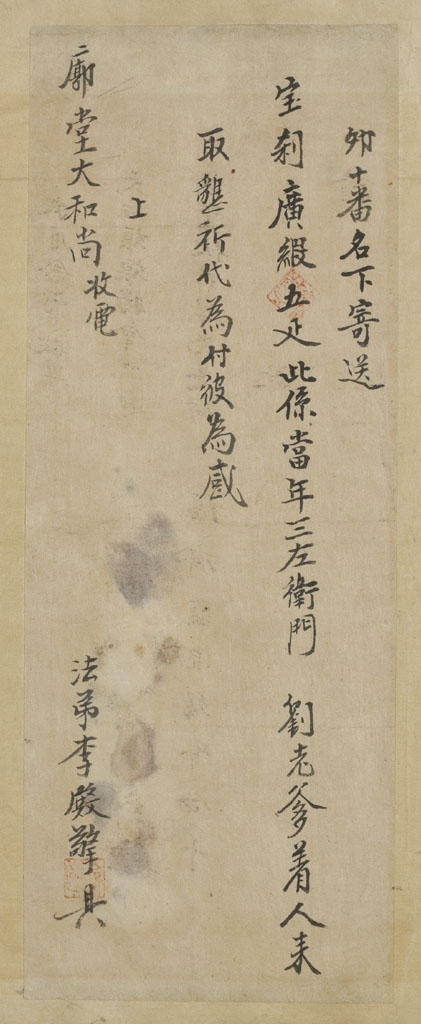 夘十番名下寄送
宝刹廣緞五疋此係當年三左衛門　劉老爹着人来
取懇祈代為付彼為感
上
廓堂大和尚收電
法弟李殿擎具